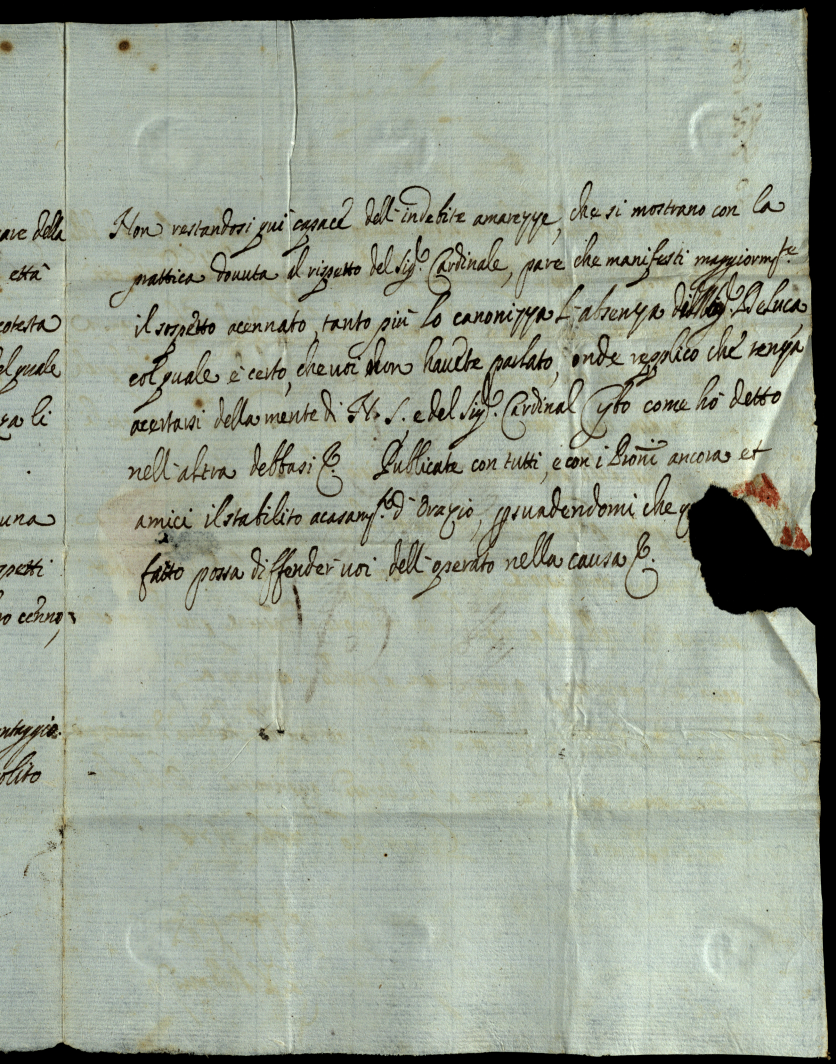 ave della
età
otesta
el quale
li
una
spetti
ro cenno,
ntaggio.
olito
Non restandosi qui capace dell'indebite amarezze, che si mostrano con la
prattica dovuta al rispetto del Sig.r Cardinale, pare che manifesti maggiorm.te
il sospetto acennato, tanto più lo canonizza l'absenza del Sig.r De Luca
col quale è certo, che voi non haverte parlato, onde replico che senza
acertarsi della mente di N. S. e del Sig.r Cardinal Cybo come hò detto
nell'altra debbasi &. Publicate con tutti, e con i Pròni ancora et
amici il stabilito acasam.to d'Orazio, psuadendomi che
fatto possa diffender voi dell'operato nella causa &.